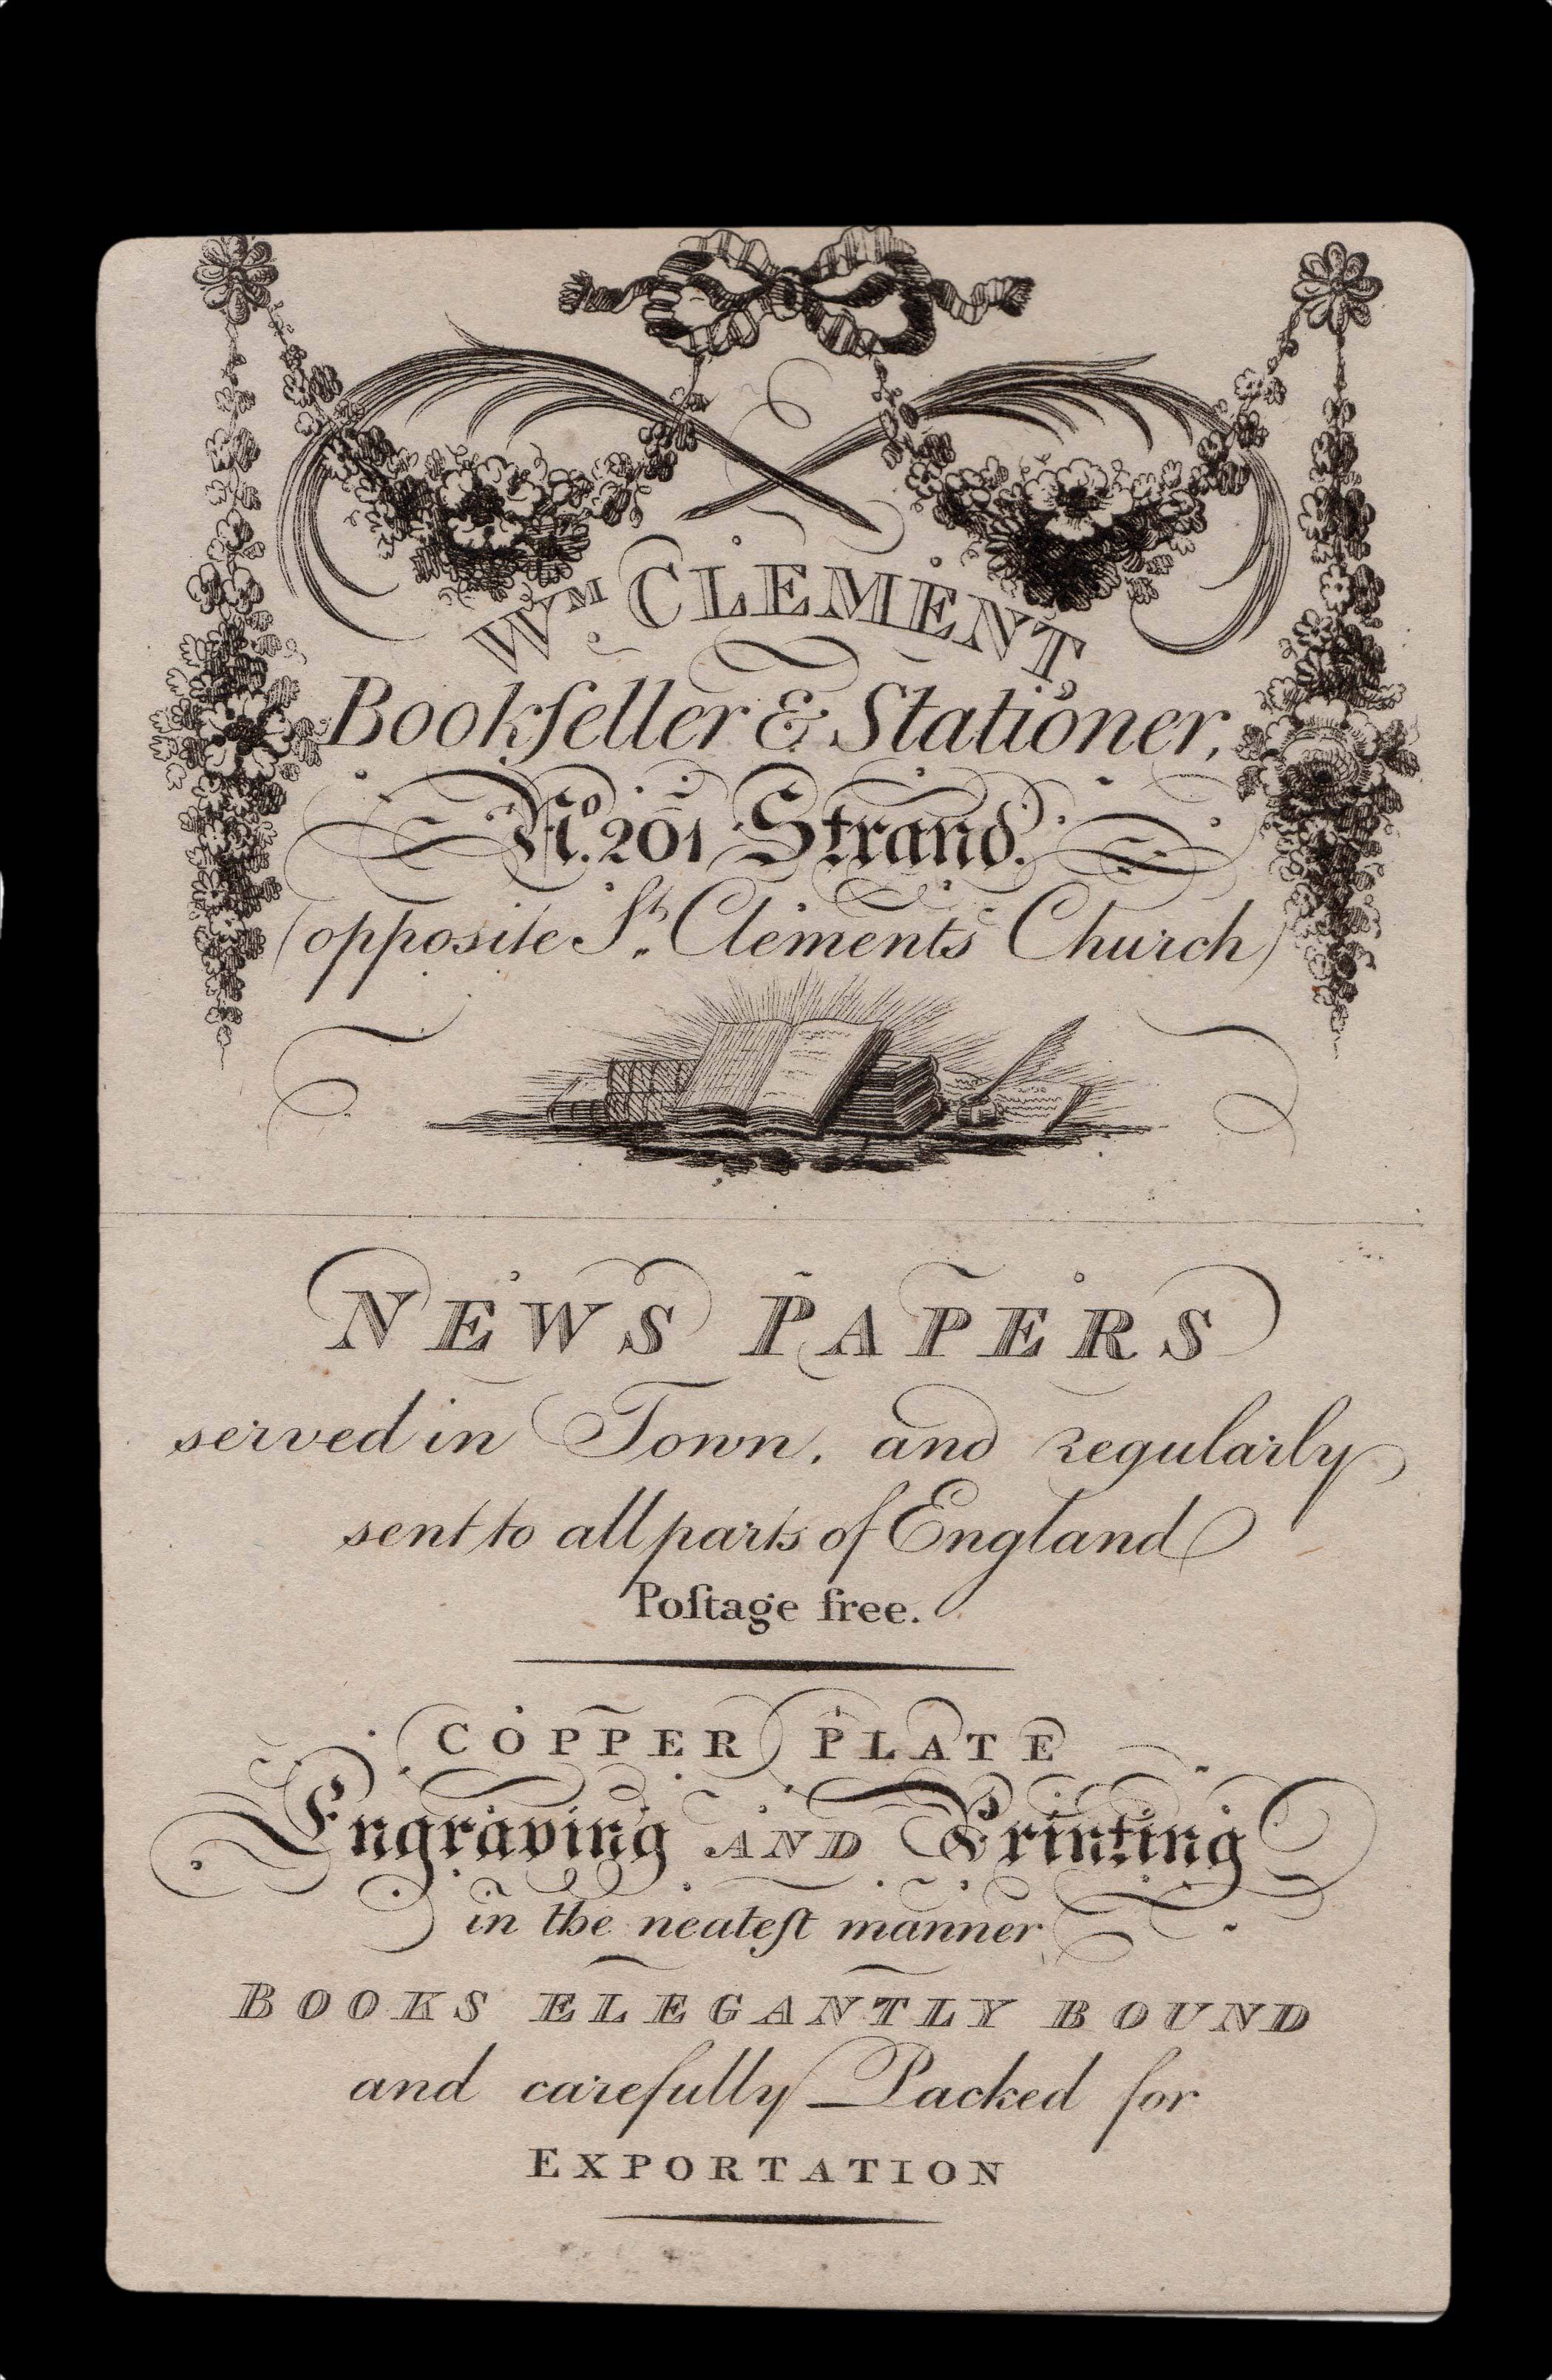 Wᴹ CLEMENT,
Bookſeller & Stationer,
Nº. 201 Strand.
(opposite Sᵗ. Clements Church)
NEWS PAPERS
served in Town, and regularly
sent to all parts of England
Poſtage free.
COPPER PLATE
Engraving AND Printing
in the neateſt manner
BOOKS ELEGANTLY BOUND
and carefully Packed for
EXPORTATION